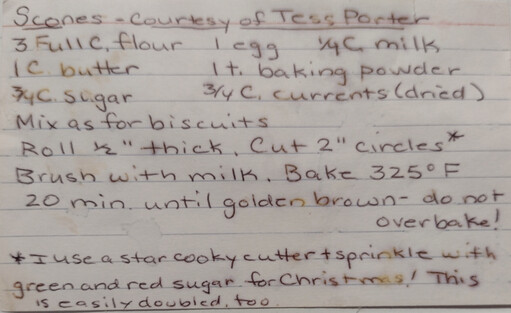 Scones - Courtesy of Tess Porter
3 Full C. flour 1 egg 1/4 C. milk
1 C. butter 1 t. baking powder
3/4 C. sugar 3/4 C. currents (dried)
Mix as for biscuits
Roll 1/2" thick. Cut 2" circles*
Brush with milk. Bake 325°F
20 min. until golden brown - do not
overbake!
* I use a star cooky cutter + sprinkle with
green and red sugar for Christmas! This
is easily doubled, too.